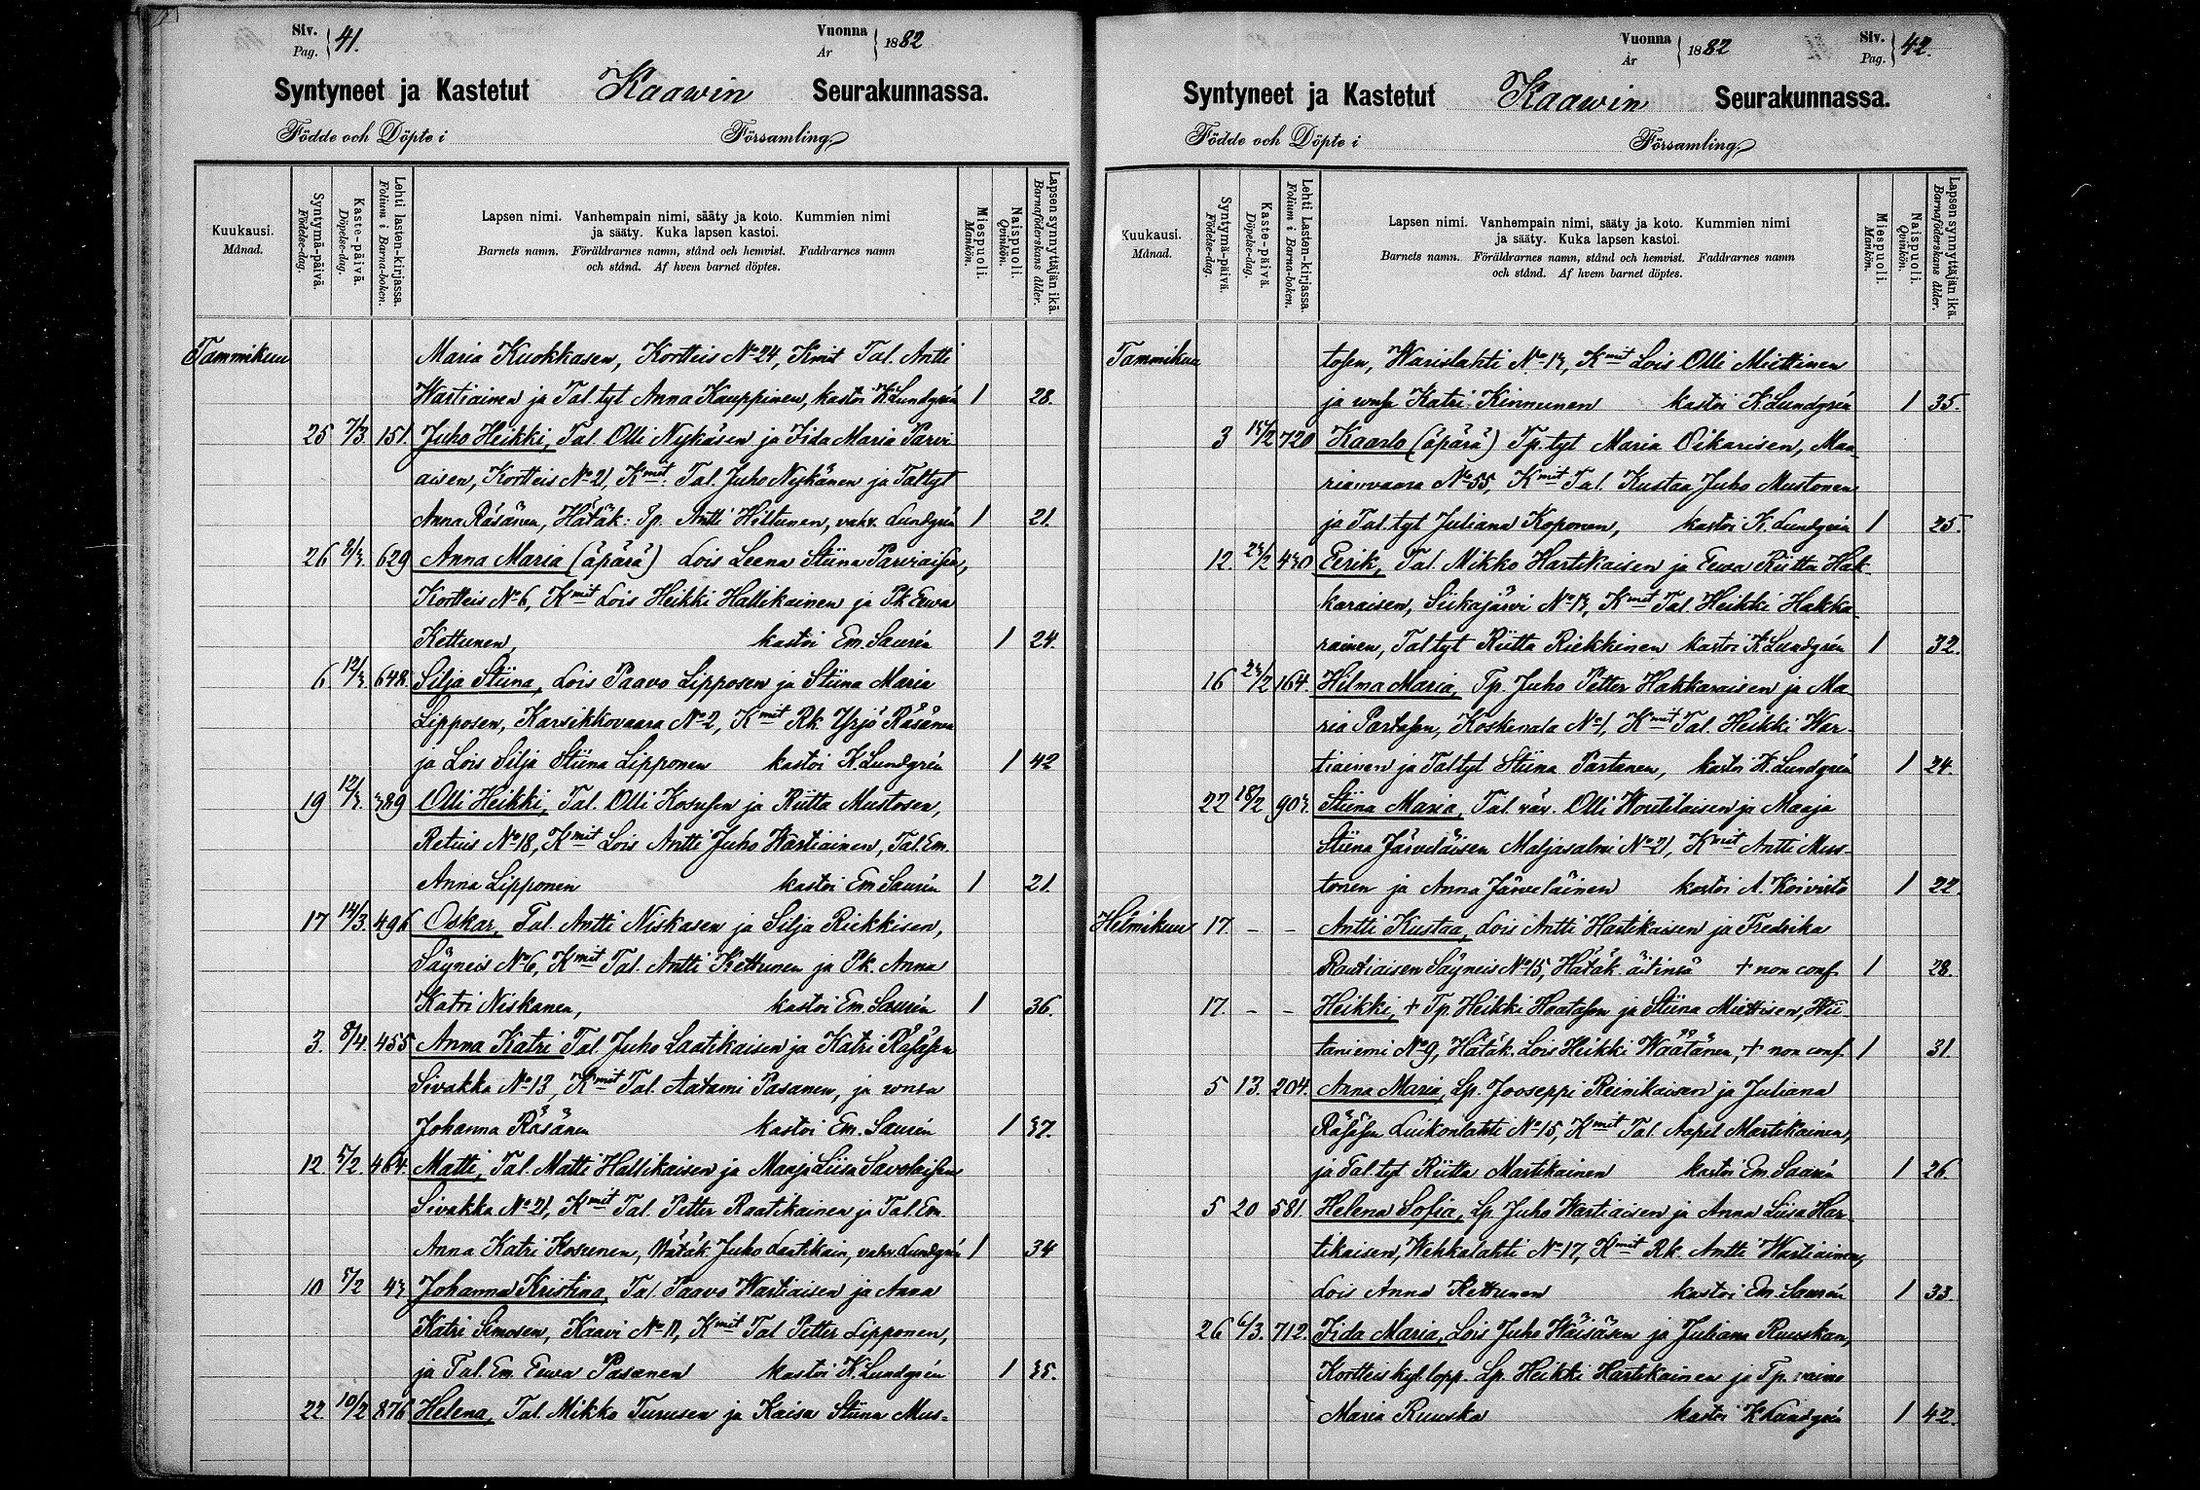 Siv. Pag. 41.
Vuonna År 1882
Syntyneet ja Kastetut Kaawin Seurakunnassa.
Födde och Döpte i Församling
Kuukausi. Månad.
Syntymä-päivä. Födelse-dag.
Kaste-päivä. Döpelse-dag.
Lehti lasten-kirjassa. Folium i Barna-boken.
Lapsen nimi. Vanhempain nimi, sääty ja koto. Kummien nimi
ja sääty. Kuka lapsen kastoi.
Barnets namn. Föräldrarnes namn, stånd och hemvist. Faddrarnes namn
och stånd. Af hvem barnet döptes.
Miespuoli. Mankön.
Naispuoli. Qvinkön.
Lapsen synnyttäjän ikä. Barnaföderskans ålder.
Tammikuu Maria Kuokkasen, Kortteis No 24, Kmit Tal. Antti
Wartiainen ja Tal. tyt Anna Kauppinen, kastoi K. Lundgrén 1 28.
25 7/3. 151. Juho Heikki, Tal. Olli Nykäsen ja Iida Maria Parvi
aisen, Kortteis No 21, Kmit. Tal. Juho Nykänen ja Tal tyt
Anna Räsänen, Hätäk: Tp. Antti Hiltunen, vahv. Lundgrén 1 21.
26 8/3. 629 Anna Maria (äpärä) Lois Leena Stiina Parviaisen,
Kortteis No 6, Kmit Lois Heikki Hallikainen ja Pk Eewa
Kettunen, kastoi Em. Saurén 1 24.
6 12/3 648. Silja Stiina, Lois Paavo Lipposen ja Stiina Maria
Lipposen, Karsikkovaara No 2, Kmit Rk. Yrjö Räsänen
ja Lois Silja Stiina Lipponen kastoi K. Lundgrén 1 42
19 12/3. 389 Olli Heikki, Tal. Olli Kosusen ja Riitta Mustosen,
Retuis No 18, Kmit Lois Antti Juho Wartiainen, Tal. Em.
Anna Lipponen kastoi Em Saurén 1 21.
17 14/3. 496 Oskar, Tal. Antti Niskasen ja Silja Riekkisen,
Säyneis No 6, Kmit Tal. Antti Kettunen ja Pk. Anna
Katri Niskanen, kastoi Em. Saurén 1 36.
3. 8/4. 455 Anna Katri Tal. Juho Laatikaisen ja Katri Räsäsen
Sivakka No 13, Kmit Tal. Aatami Pasanen, ja wnsa
Johanna Räsänen kastoi Em. Saurén 1 37.
12. 5/2 464. Matti, Tal. Matti Hallikaisen ja Maaja Liisa Savolaisen
Sivakka No 21, Kmit Tal. Petter Raatikainen ja Tal. Em.
Anna Katri Kosunen, Hätäk. Juho Laatikain, vahv. Lundgrén 1 34
10 5/2 43 Johanna Kristina, Tal. Paavo Wartiaisen ja Anna
Katri Simosen, Kaavi No 11, Kmit Tal Petter Lipponen,
ja Tal. Em. Eewa Pasanen kastoi K. Lundgrén 1 35.
22. 10/2 876 Helena, Tal. Mikko Turusen ja Kaisa Stiina Mus-
Vuonna År 1882
Siv. Pag. 42.
Syntyneet ja Kastetut Kaawin Seurakunnassa.
Födde och Döpte i Församling
Kuukausi. Månad.
Syntymä-päivä. Födelse-dag.
Kaste-päivä. Döpelse-dag.
Lehti Lasten-kirjassa. Folium i Barna-boken.
Lapsen nimi. Vanhempain nimi, sääty ja koto. Kummien nimi
ja sääty. Kuka lapsen kastoi.
Barnets namn. Föräldrarnes namn, stånd och hemvist. Faddrarnes namn
och stånd. Af hvem barnet döptes.
Miespuoli. Mankön.
Naispuoli. Qvinkön.
Lapsen synnyttäjän ikä. Barnaföderskans ålder.
Tammikuu tosen, Warislahti No 13, Kmit Lois Olli Miettinen
ja wnsa Katri Kinnunen kastoi K. Lundgrén 1 35.
3 15/2 720 Kaarlo (äpärä) Tp. tyt Maria Oikarisen, Maa
rianvaara No 55, Kmit Tal. Kustaa Juho Mustonen
ja Tal. tyt Juliana Koponen, kastoi K. Lundgrén 1 25.
12. 23/2 430 Eerik, Tal. Mikko Hartikaisen ja Eewa Riitta Hak
karaisen, Siikajärvi No 13, Kmit Tal. Heikki Hakka
rainen, Tal tyt Riitta Riekkinen kastoi K. Lundgrén 1 32.
16 23/2 164. Hilma Maria, Tp. Juho Petter Hakkaraisen ja Ma
ria Partasen, Koskenala No 1, Kmit Tal. Heikki War-
tiainen ja Tal tyt Stiina Partanen, kastoi K. Lundgrén 1 24.
22 18/2 903. Stiina Maria, Tal. väv. Olli Woutilaisen ja Maaja
Stiina Järveläisen Maljasalmi No 21, Kmit Antti Mus-
tonen ja Anna Järveläinen kastoi A. Koivisto 1 22.
Helmikuu 17. - - Antti Kustaa, Lois Antti Hartikaisen ja Fredrika
Rautiaisen Säyneis No 15, Hätäk. äitinsä + non conf 1 28.
17. - - Heikki, + Tp. Heikki Haatasen ja Stiina Miettisen, Nii
taniemi No 9, Hätäk. Lois Heikki Wäätänen, + non conf. 1 31.
5 13. 204. Anna Maria, Lp. Jooseppi Reinikaisen ja Juliana
Räsäsen Luikonlahti No 15, Kmit Tal. Aapel Martikainen,
ja Tal. tyt Riitta Martikainen kastoi Em. Saurén 1 26.
5 20 581 Helena Sofia, Lp. Juho Wartiaisen ja Anna Liisa Har
tikaisen, Wehkalahti No 17, Kmit Rk. Antti Wartiainen,
Lois Anna Kettunen kastoi Em. Saurén 1 33.
26 6/3. 712. Iida Maria, Lois Juho Wäisäsen ja Juliana Ruuskan,
Kortteis kyl. lopp. Lp. Heikki Hartikainen ja Tp. vaimo
Maria Ruuska kastoi K Lundgrén 1 42.